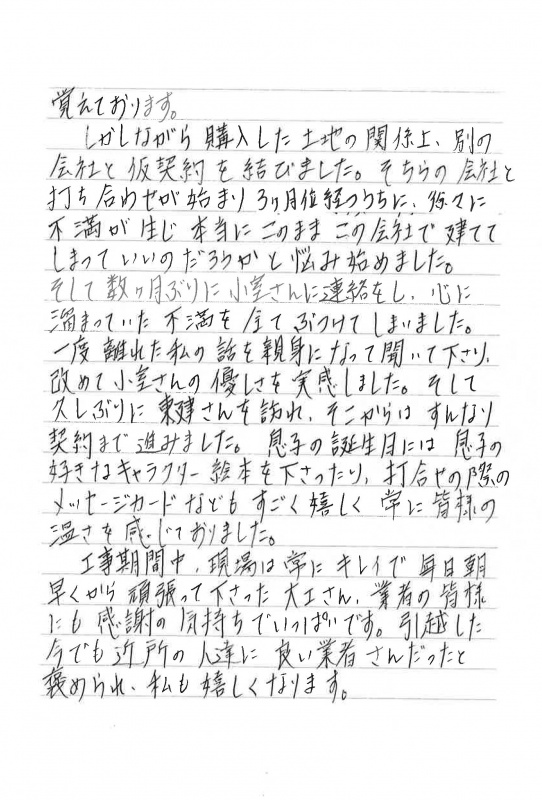 覚えております。
しかしながら購入した土地の関係上、別の
会社と仮契約を結びました。そちらの会社と
打ち合わせが始まり3ヶ月位経つうちに、徐々に
不満が生じ本当にこのままこの会社で建てて
しまっていいのだろうかと悩み始めました。
そして数ヶ月ぶりに小室さんに連絡をし、心に
溜まっていた不満を全てぶつけてしまいました。
一度離れた私の話を親身になって聞いて下さり、
改めて小室さんの優しさを実感しました。そして
久しぶりに東建さんを訪れ、そこからはすんなり
契約まで進みました。息子の誕生日には息子の
好きなキャラクター絵本を下さったり、打合せの際の
メッセージカードなどもすごく嬉しく常に皆様の
温さを感じておりました。
工事期間中、現場は常にキレイで毎日朝
早くから頑張って下さった大工さん、業者の皆様
にも感謝の気持ちでいっぱいです。引越した
今でも近所の人達に良い業者さんだったと
褒められ、私も嬉しくなります。